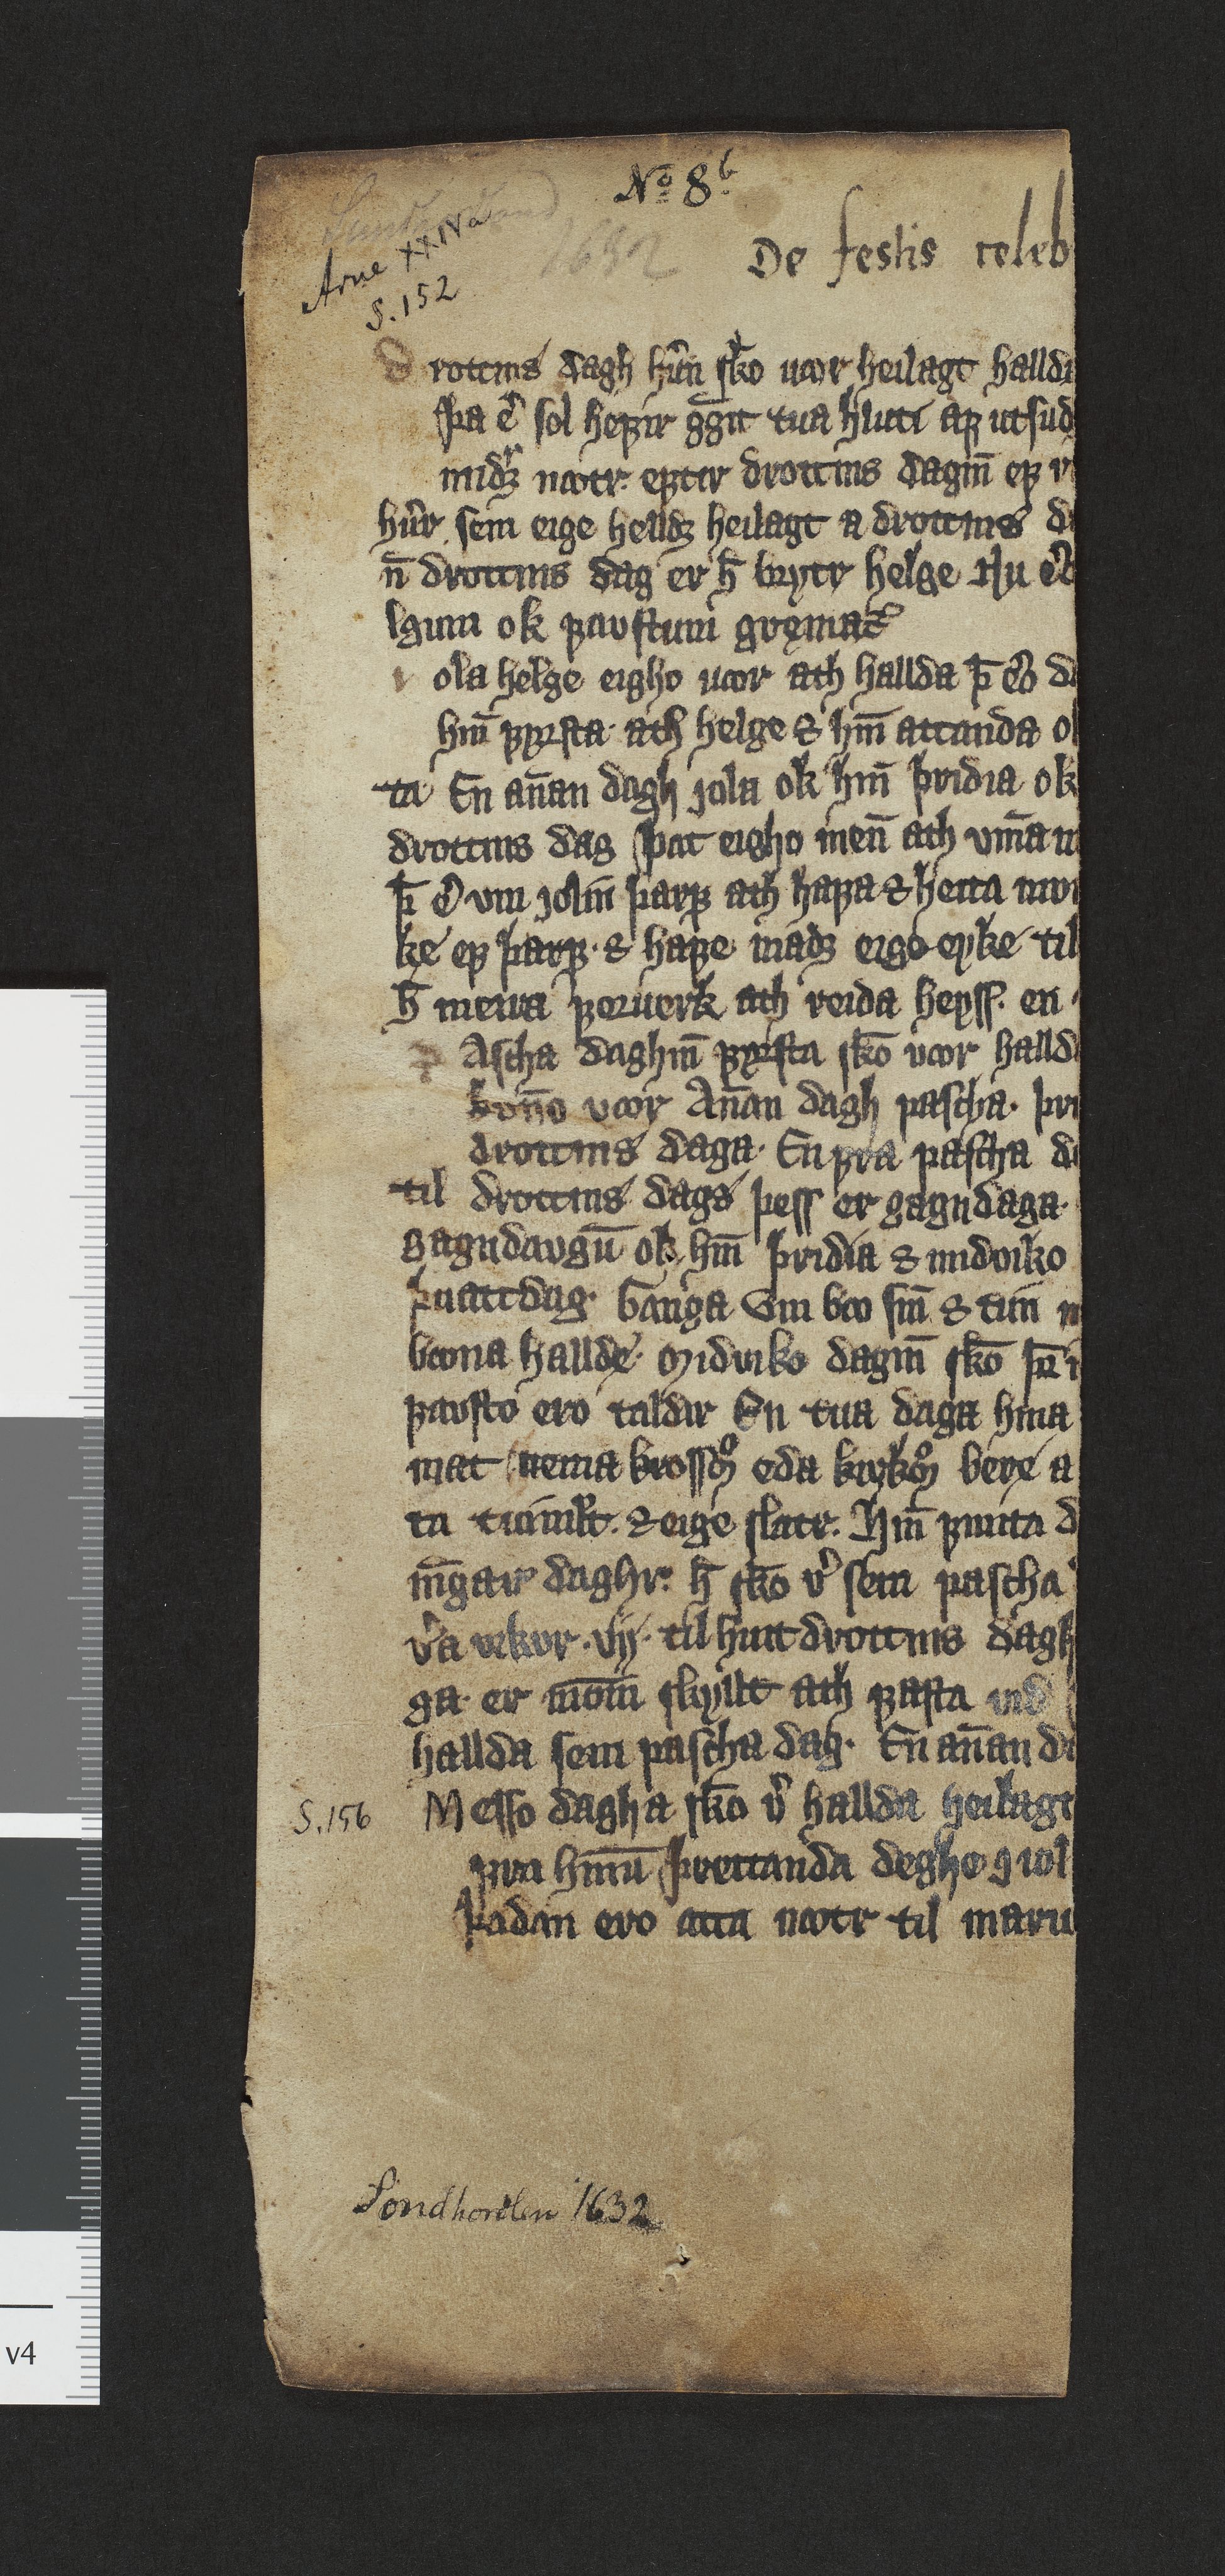 No 8b
Arne XXIV a
S. 152
1632
De festis celeb
Drottins dagh huern sko uær heilagt halldi
þa er sol hefir gengit tua hluti af utsud
midr nætr. eptir drottins dagin ef
huer sem eige helldr heilagt a drottins d
n drottins dag er h brytr helge Nu er
lgum ok faustum gręmat
iola helge eigho uær ath hallda þ ero d
hin fyrsta ath helge & hin attanda ok
ta En annan dagh jola ok hin þridia ok
drottins dag þat eigho menn ath vinna
þ er vm jolin þarf ath hafa & heita
ke ef þarf. & hafe madr eige eyke til
h meira foruerk ath reida heyss. en
Pascha daghin fyrsta sko vær halld
konno vær Annan dagh pascha. þri
drottins daga. En fra pascha d
til drottins dags þess er gagndaga.
gagndaugum ok hin þridia & miduiko
þuattdag. Ganga vm bæ sin & tun
bæna hallde. Miduiko dagin sko
fausto ero taldir En tua daga hina
mat nema krossom eda kirkom bere a
ta tuimilt. & eige slatr. Hin fimta d
ingar daghr. h sko ver sem pascha
vera vikur. vij. til hint drottins dagh
ga. er monnom skyllt ath fasta vid
hallda sem pascha dag. En annan d
S. 156
Messo dagha sko ver hallda heilagt
fra hinum þrettanda deghe j iol
þadan ero atta nætr til mariu
Søndhordlen 1632